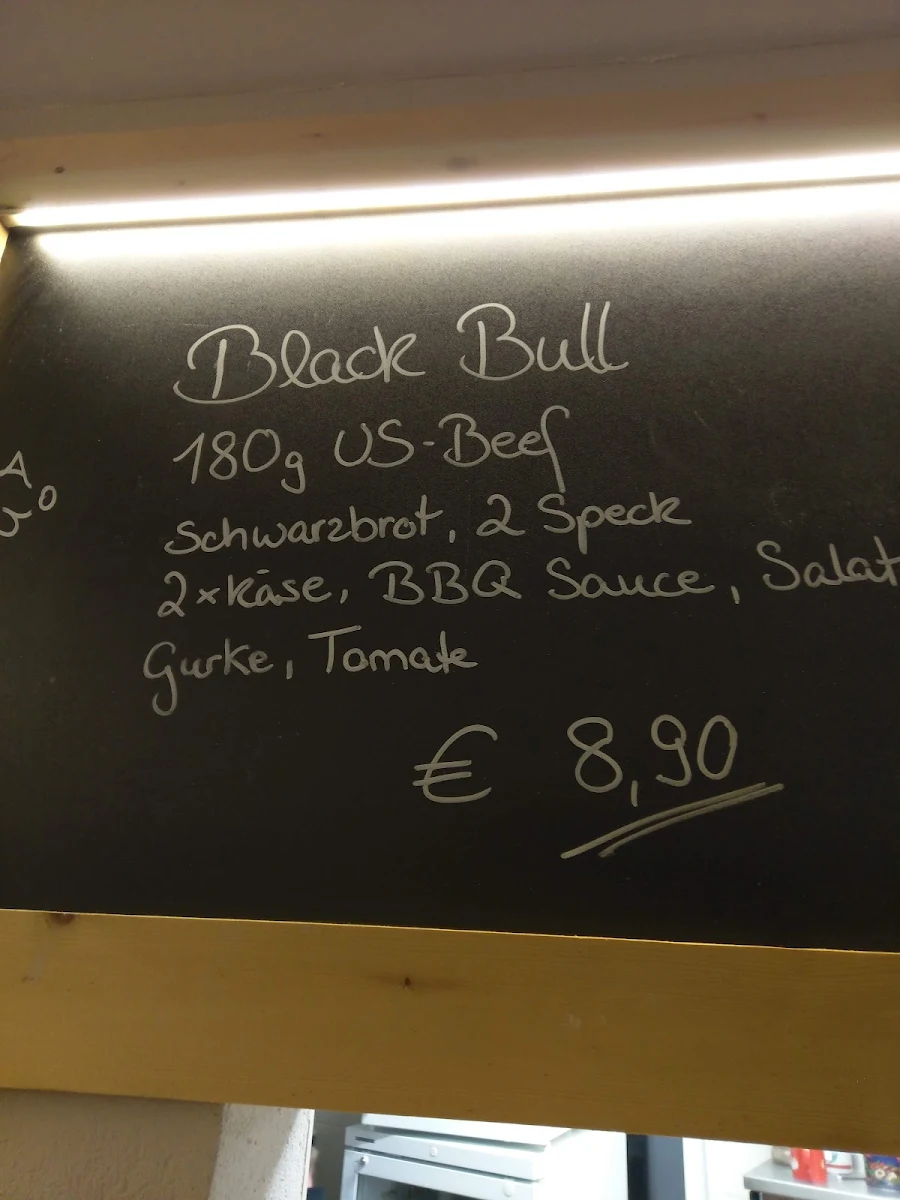 Black Bull
180g US-Beef
Schwarzbrot, 2 Speck
2xKäse, BBQ Sauce, Salat
Gurke, Tomate
€ 8,90